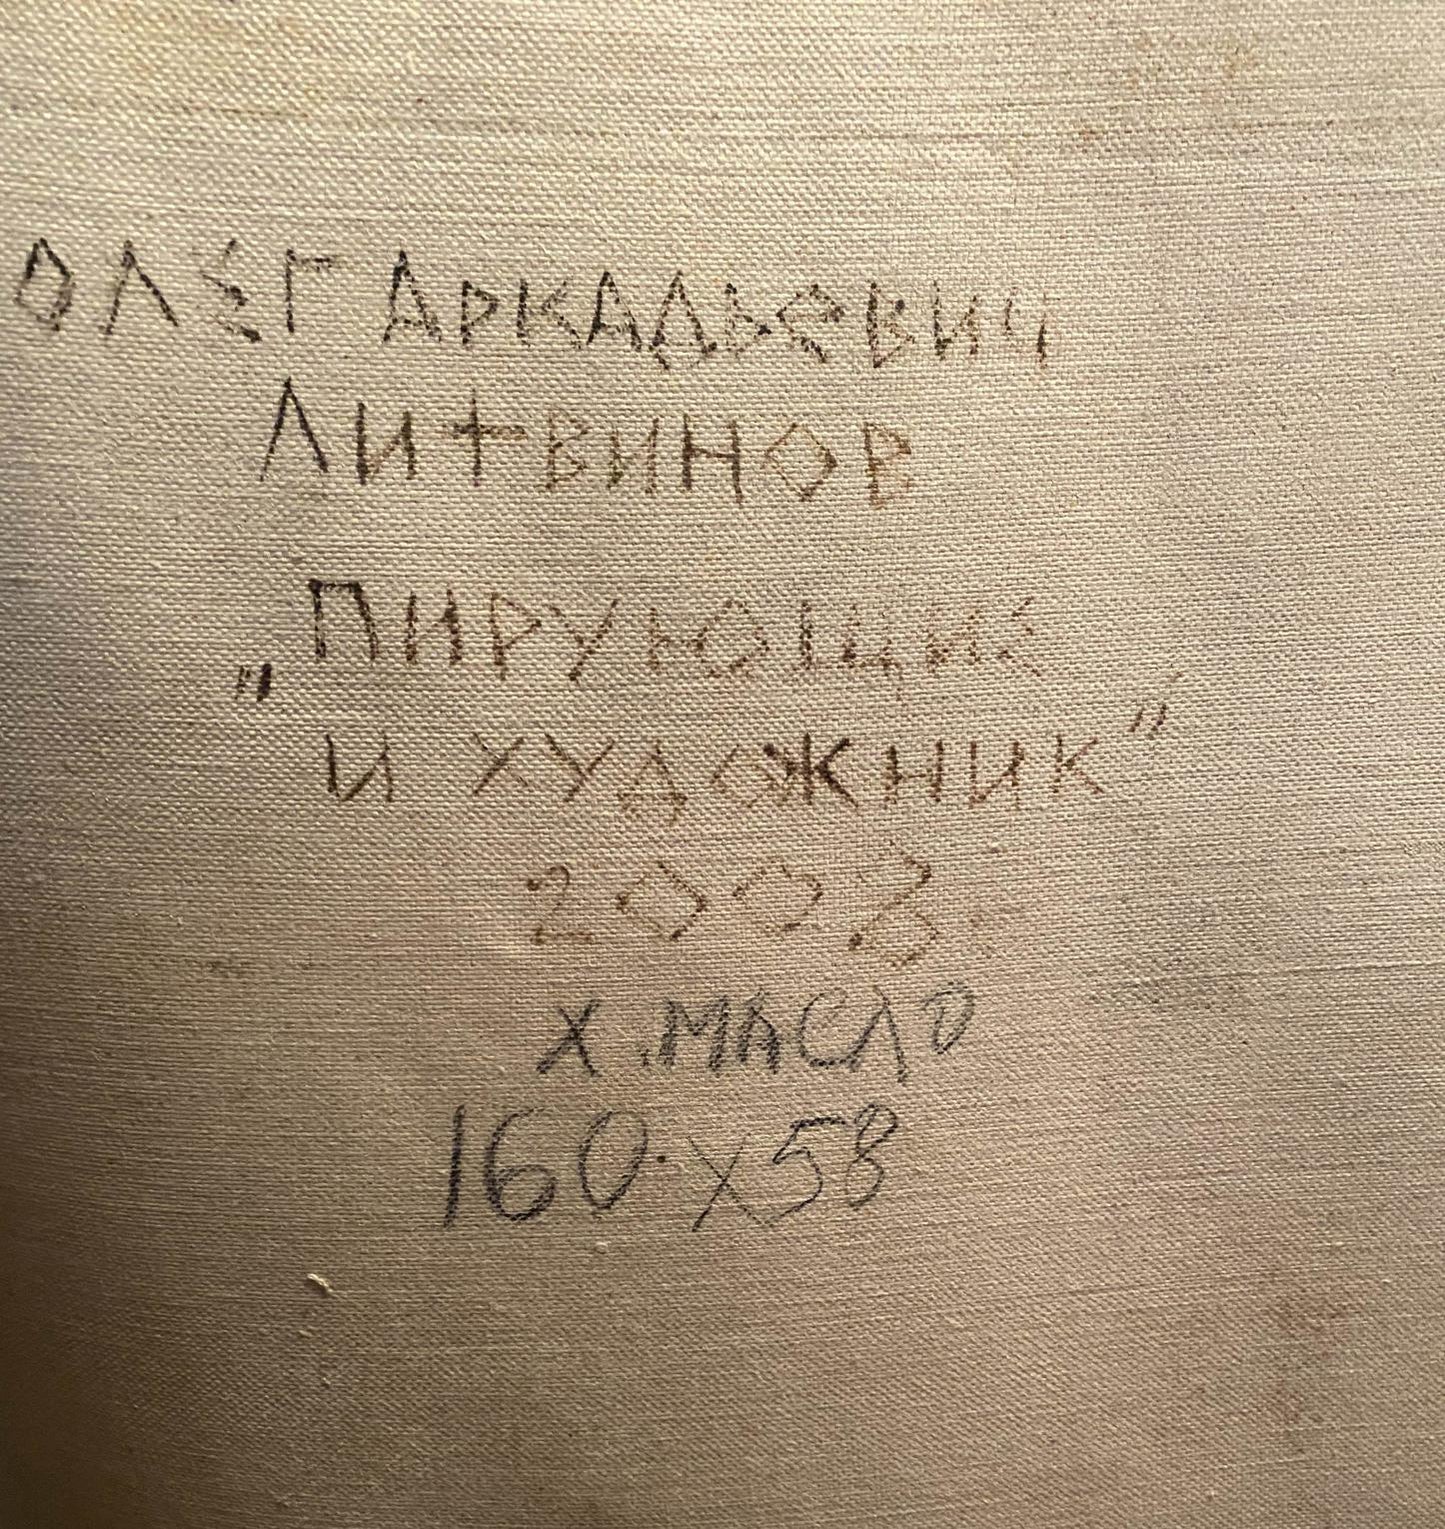 ОЛЕГ АРКАДЬЕВИЧ
ЛИТВИНОВ
„ПИРУЮЩИЕ
И ХУДОЖНИК”
2003.
Х.МАСЛО
160х58